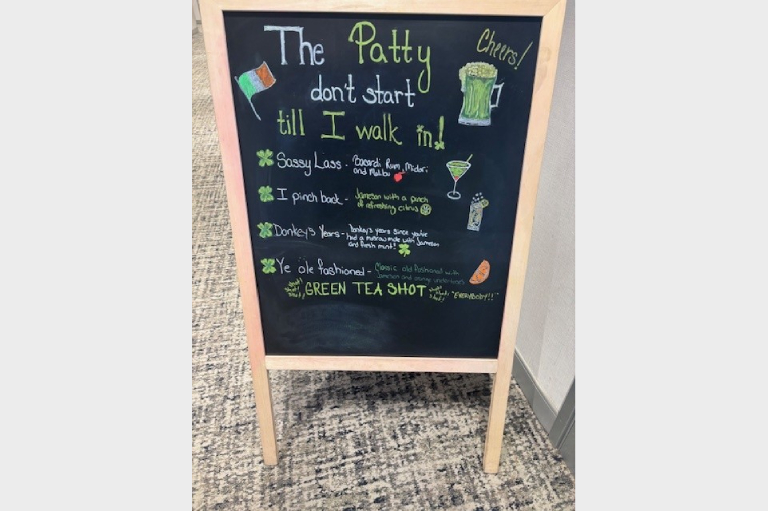 The Patty
Cheers!
don't start
till I walk in!
Sassy Lass - Bacardi Rum, Midori
and Malibu
I pinch back - Jameson with a pinch
of refreshing citrus
Donkey's Years - Donkey's years since you've
had a mule made with Jameson
and fresh mint!
Ye ole fashioned - Classic old fashioned with
Jameson and orange
shot! shot! shot! GREEN TEA SHOT shot! shot! shot! "EVERYBODY!!"